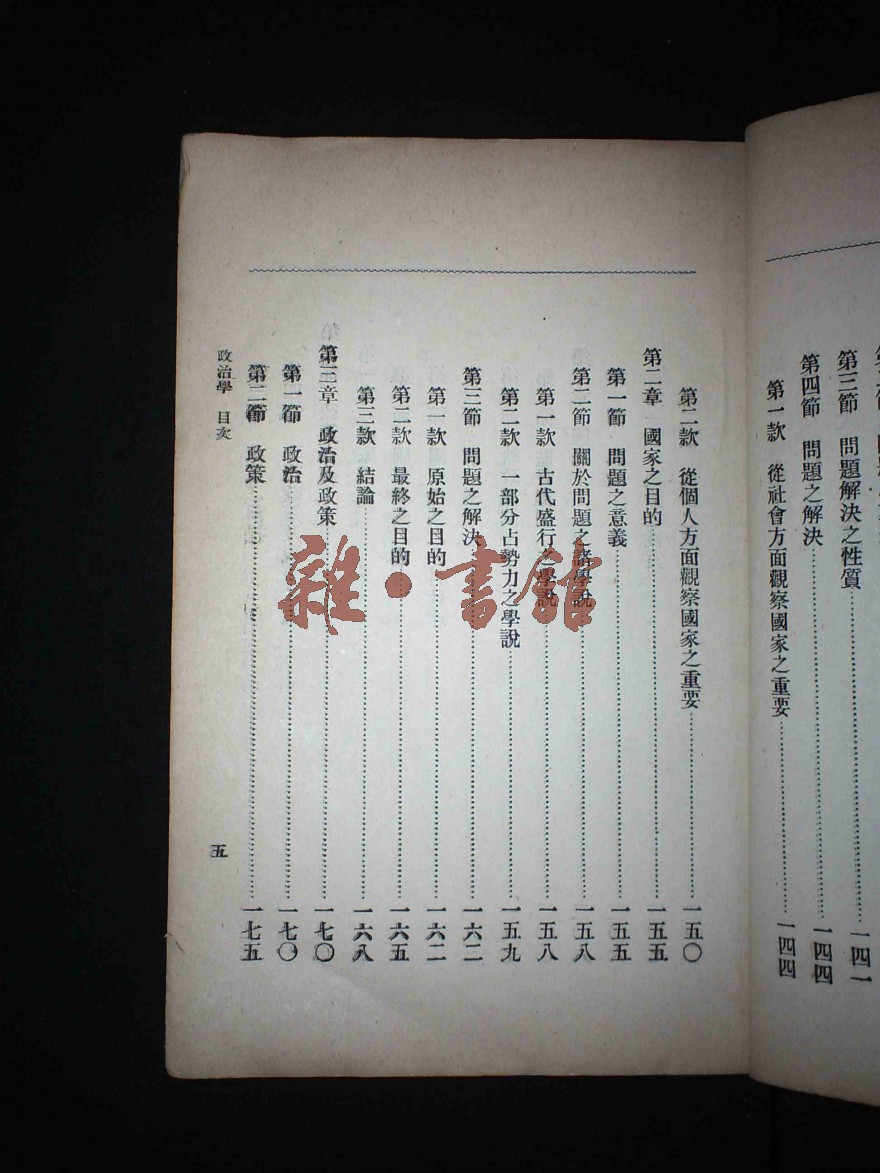 第三節 問題解決之性質 一四一
第四節 問題之解決 一四四
第一款 從社會方面觀察國家之重要 一四四
第二款 從個人方面觀察國家之重要 一五〇
第二章 國家之目的 一五五
第一節 問題之意義 一五五
第二節 關於問題之諸學說 一五八
第一款 古代盛行之學說 一五八
第二款 一部分占勢力之學說 一五九
第三節 問題之解決 一六二
第一款 原始之目的 一六二
第二款 最終之目的 一六五
第三款 結論 一六八
第三章 政治及政策 一七〇
第一節 政治 一七〇
第二節 政策 一七五
政治學 目次
五
雜·書館